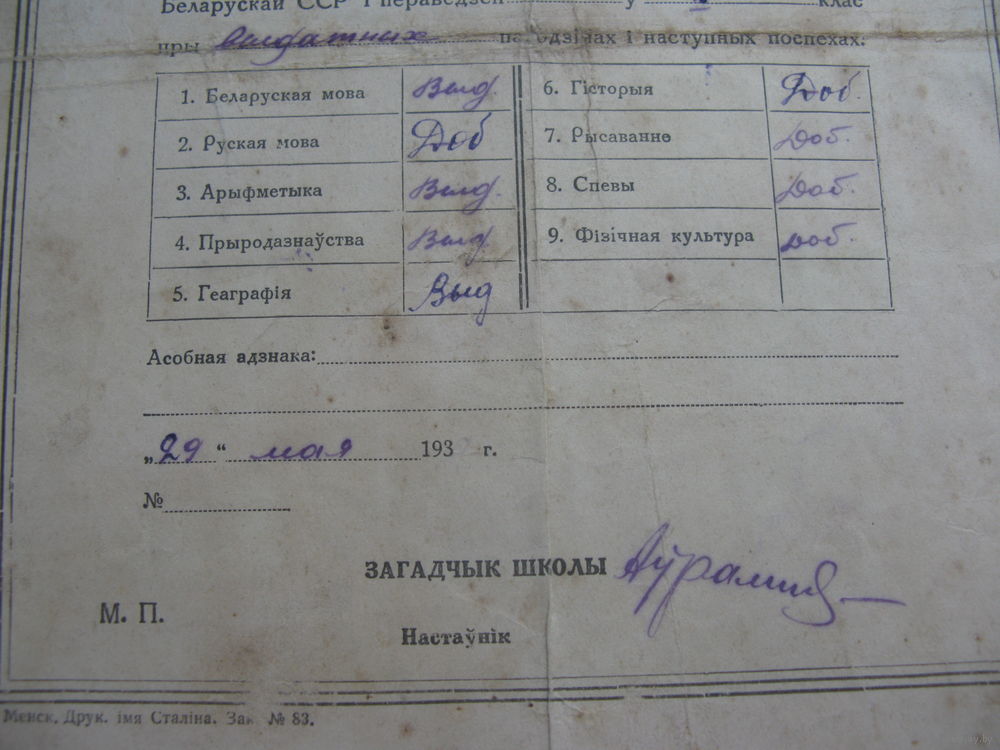 Беларускай ССР і пераведзен у клас
пры выдатных паводзінах і наступных поспехах:
1. Беларуская мова Выд.
2. Руская мова Доб
3. Арыфметыка Выд.
4. Прыродазнаўства Выд.
5. Геаграфія Выд
6. Гісторыя Доб.
7. Рысаванне Доб.
8. Спевы Доб.
9. Фізічная культура Доб.
Асобная адзнака:
„29“ мая 193 г.
№
ЗАГАДЧЫК ШКОЛЫ
М. П.
Настаўнік
Менск. Друк. імя Сталіна. Зак. № 83.